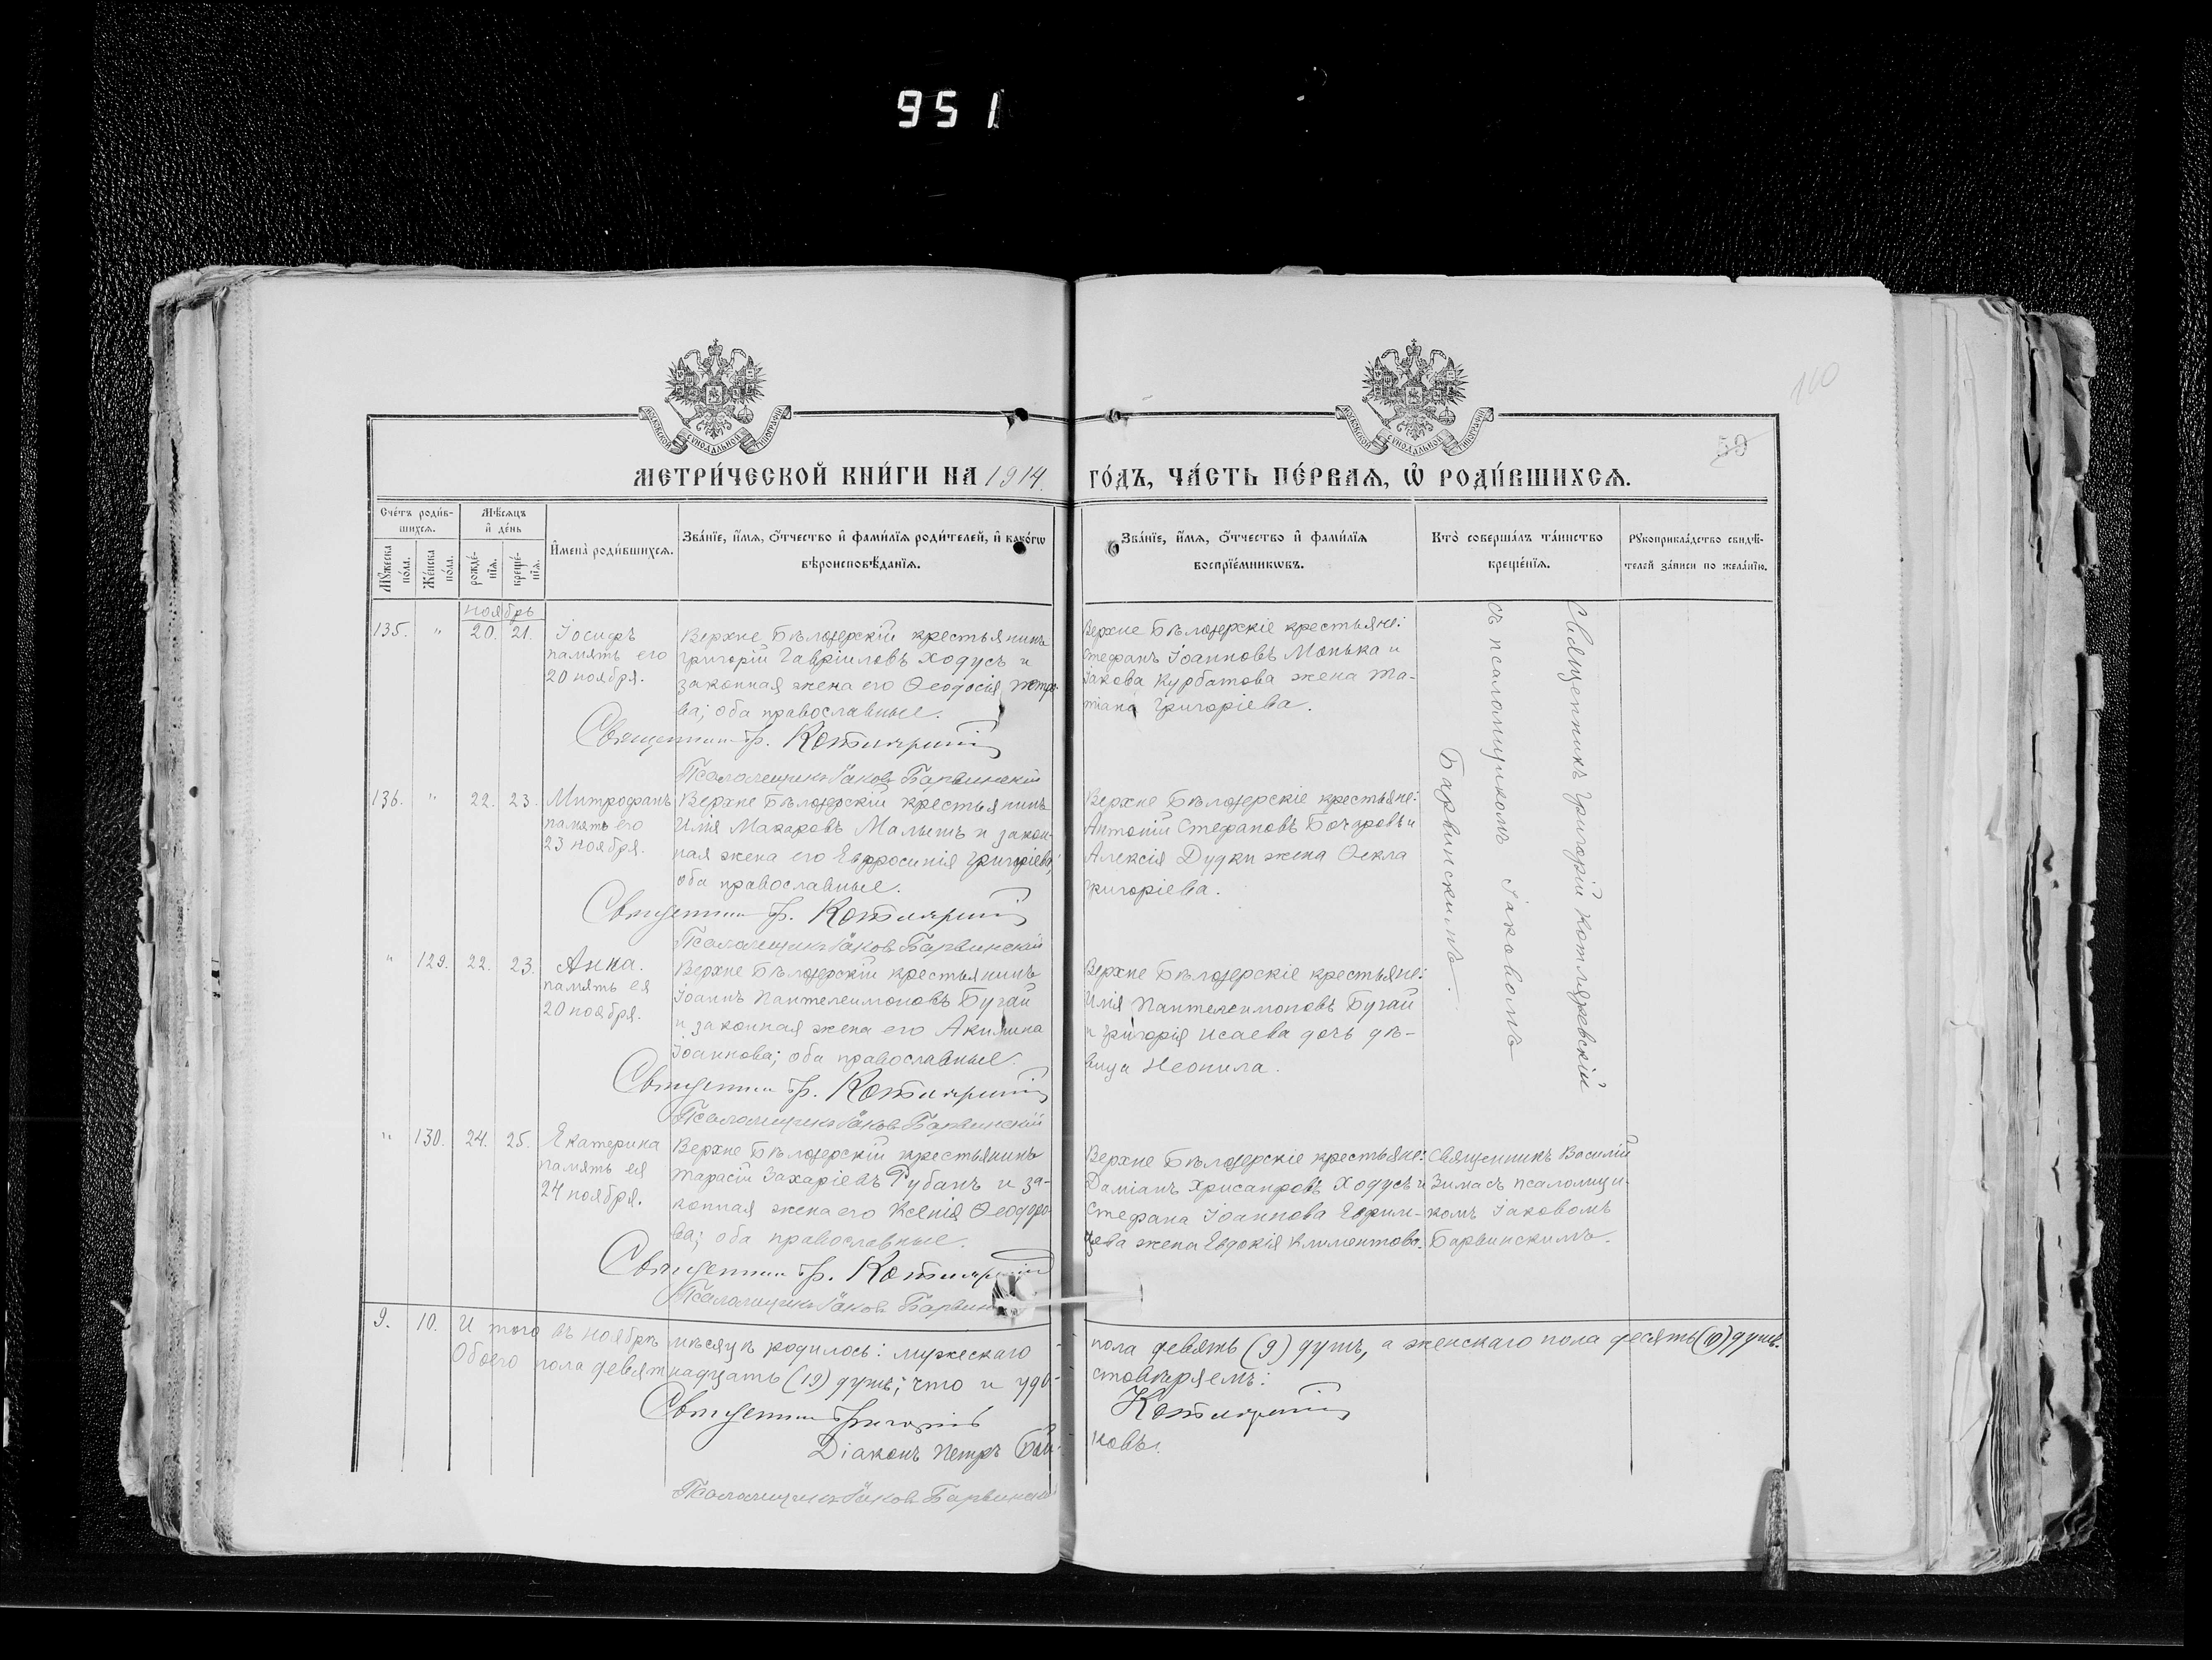 951
100
59
МОСКОВСКОЙ СѴНОДАЛЬНОЙ ТИПОГРАФІИ
МОСКОВСКОЙ СѴНОДАЛЬНОЙ ТИПОГРАФІИ
МЕТРИ́ЧЕСКОЙ КНИ́ГИ НА 1914 ГО́ДЪ, ЧА́СТЬ ПЕ́РВАѦ, Ѡ҆ РОДИ́ВШИХСѦ.
Сче́тъ роди́в-
шихсѧ.
Мꙋ́жеска по́ла.
Же́нска по́ла.
Мѣ́сѧцъ
и҆ де́нь
рожде́-
нїѧ.
креще́-
нїѧ.
И҆мена̀ роди́вшихсѧ.
Зва́нїе, и҆́мѧ, ѻ҆́тчество и҆ фами́лїѧ роди́телей, и҆ како́гѡ
вѣроисповѣ́данїѧ.
Зва́нїе, и҆́мѧ, ѻ҆́тчество и҆ фами́лїѧ
воспрїе́мникѡвъ.
Кто̀ соверша́лъ та́инство
креще́нїѧ.
Рꙋкоприкла́дство свидѣ́-
телей за́писи по жела́нїю.
ноябрь
135. " 20. 21.
Іосифъ
память его
20 ноября.
Верхне Бѣлозерскій крестьянинъ
Григорій Гавріиловъ Ходусъ и
законная жена его Ѳеодосія Петро-
ва; оба православные.
Священникъ Гр. Котляревскій
Псаломщикъ Іаковъ Барвинскій
Верхне Бѣлозерскіе крестьяне:
Стефанъ Іоанновъ Монька и
Іакова Курбатова жена Та-
тіана Григоріева.
Священникъ Григорій Котляревскій
съ псаломщикомъ Іаковомъ
Барвинскимъ.
136. " 22. 23.
Митрофанъ
память его
23 ноября.
Верхне Бѣлозерскій крестьянинъ
Илія Макаровъ Малышъ и закон-
ная жена его Евфросинія Григоріева;
оба православные.
Священникъ Гр. Котляревскій
Псаломщикъ Іаковъ Барвинскій
Верхне Бѣлозерскіе крестьяне:
Антоній Стефановъ Бочаровъ и
Алексія Дудки жена Ѳекла
Григоріева.
" 129. 22. 23.
Анна.
память ея
20 ноября.
Верхне Бѣлозерскій крестьянинъ
Іоаннъ Пантелеимоновъ Бугай
и законная жена его Акилина
Іоаннова; оба православные.
Священникъ Гр. Котляревскій
Псаломщикъ Іаковъ Барвинскій
Верхне Бѣлозерскіе крестьяне:
Илія Пантелеимоновъ Бугай
и Григорія Исаева дочь дѣ-
вица Неонила.
" 130. 24. 25.
Екатерина
память ея
24 ноября.
Верхне Бѣлозерскій крестьянинъ
Тарасій Захаріевъ Рубанъ и за-
конная жена его Ксенія Ѳеодоро-
ва; оба православные.
Священникъ Гр. Котляревскій
Псаломщикъ Іаковъ Барвинскій
Верхне Бѣлозерскіе крестьяне:
Даміанъ Хрисанфовъ Ходусъ и
Стефана Іоаннова Ефим-
цева жена Евдокія Климентова.
Священникъ Василій
Зима съ псаломщи-
комъ Іаковомъ
Барвинскимъ.
9. 10. И того въ ноябрѣ мѣсяцѣ родилось: мужескаго пола девять (9) душъ, а женскаго пола десять (10) душъ.
Обоего пола девятнадцать (19) душъ; что и удо- стовѣряемъ:
Священникъ Григорій Котляревскій
Діаконъ Петръ Бой- ковъ.
Псаломщикъ Іаковъ Барвинскій